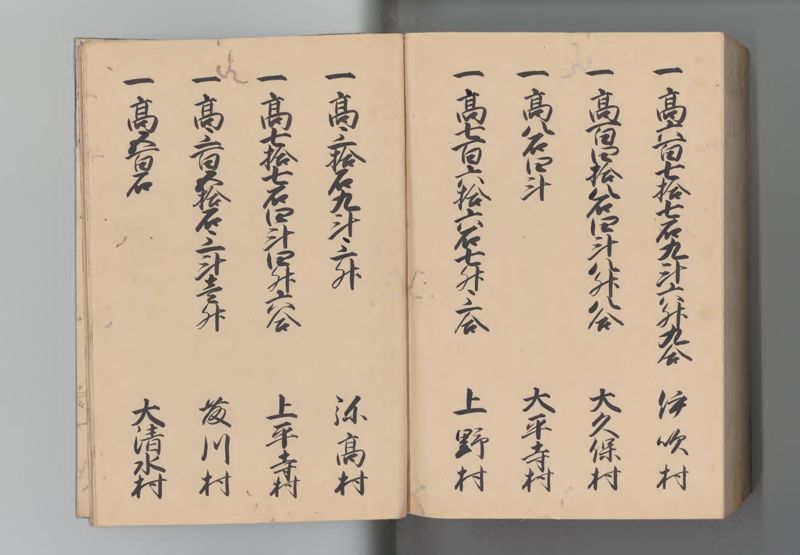 一高六百七拾七石九斗六升九合 伊吹村
一高百四拾八石四斗八升八合 大久保村
一高八石四斗 大平寺村
一高七百六拾六石七升三合 上野村
一高三拾石九斗三升 弥高村
一高七拾七石四斗四升六合 上平寺村
一高三百五拾石三斗壱升 藤川村
一高五百石 大清水村